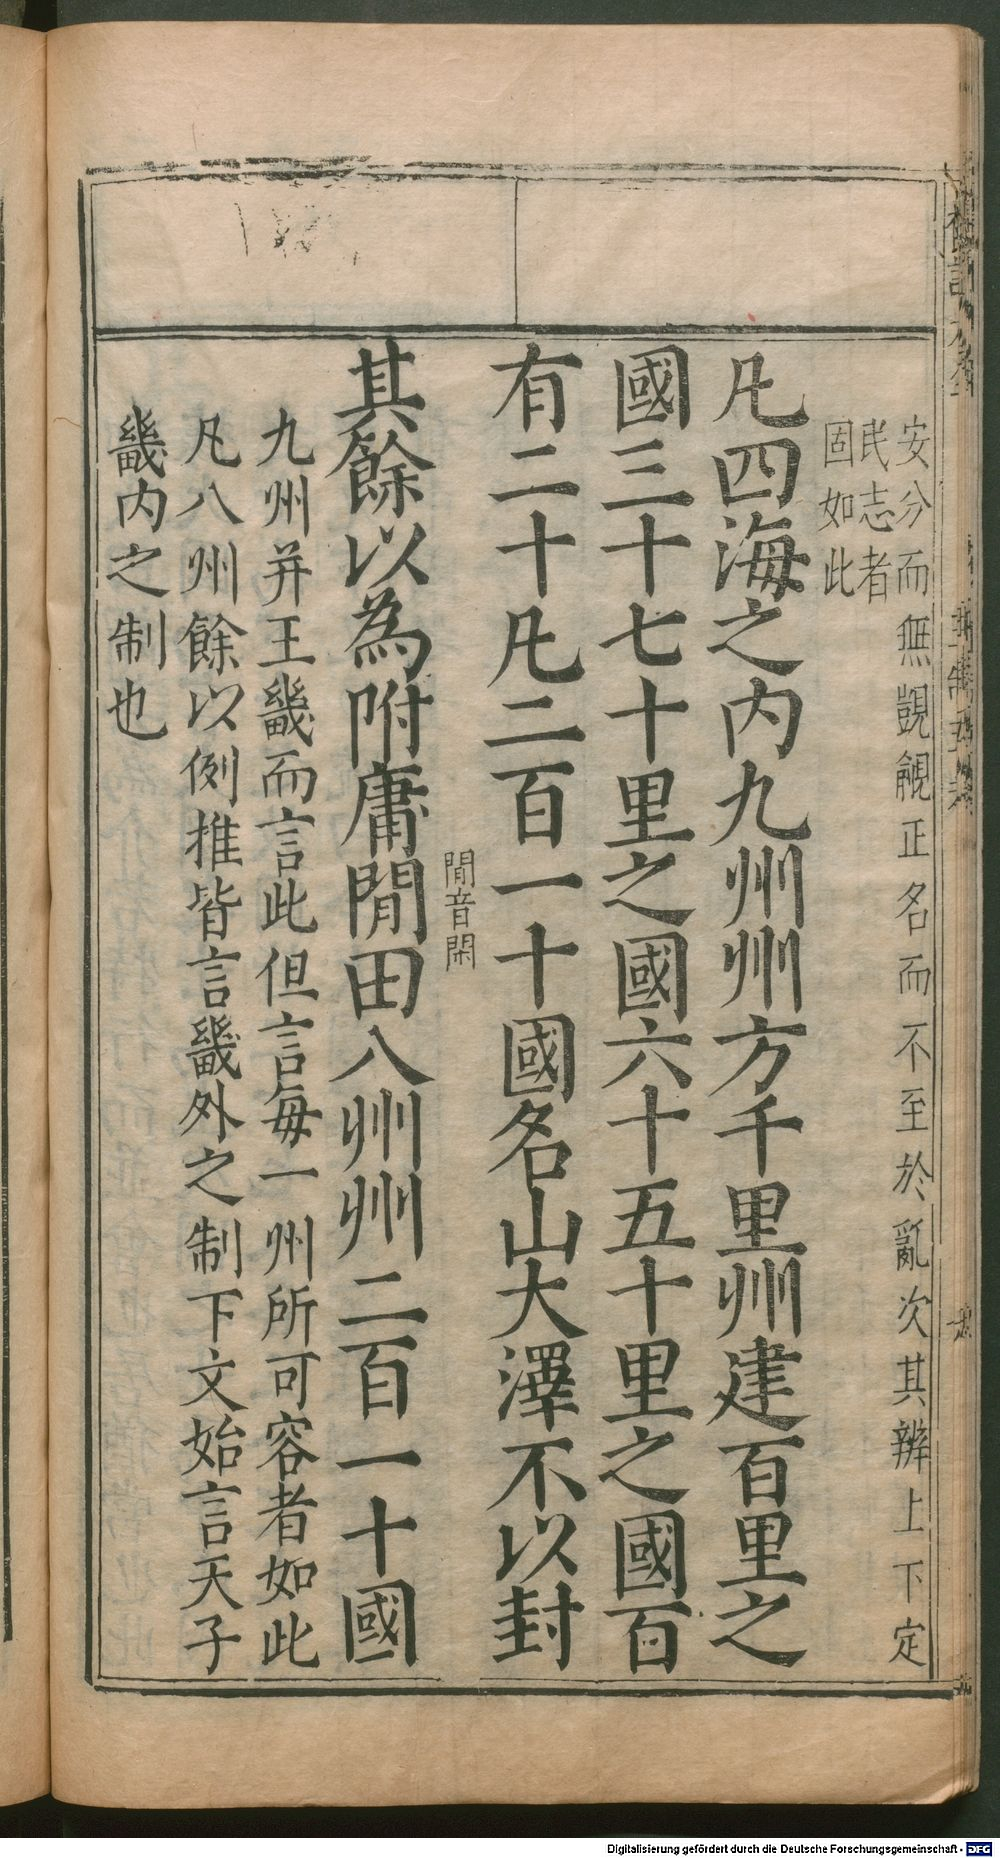 安分而無覬覦正名而不至於亂次其辨上下定
民志者
固如此
凡四海之内九州州方千里州建百里之
國三十七十里之國六十五十里之國百
有二十凡二百一十國名山大澤不以封
閒音閑
其餘以為附庸閒田八州州二百一十國
九州并王畿而言此但言每一州所可容者如此
凡八州餘以例推皆言畿外之制下文始言天子
畿内之制也
Digitalisierung gefördert durch die Deutsche Forschungsgemeinschaft - DFG